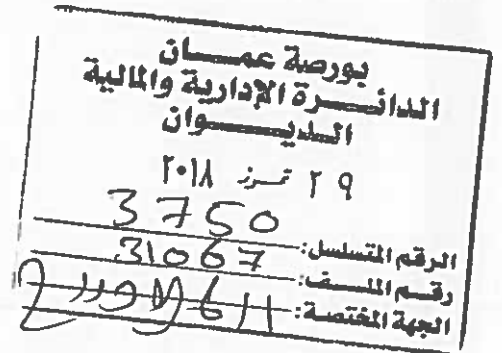 بورصة عمان
الدائرة الإدارية والمالية
الديوان
٢٩ تموز ٢٠١٨
الرقم المتسلسل: 3750
رقم الملف: 31067
الجهة المختصة: